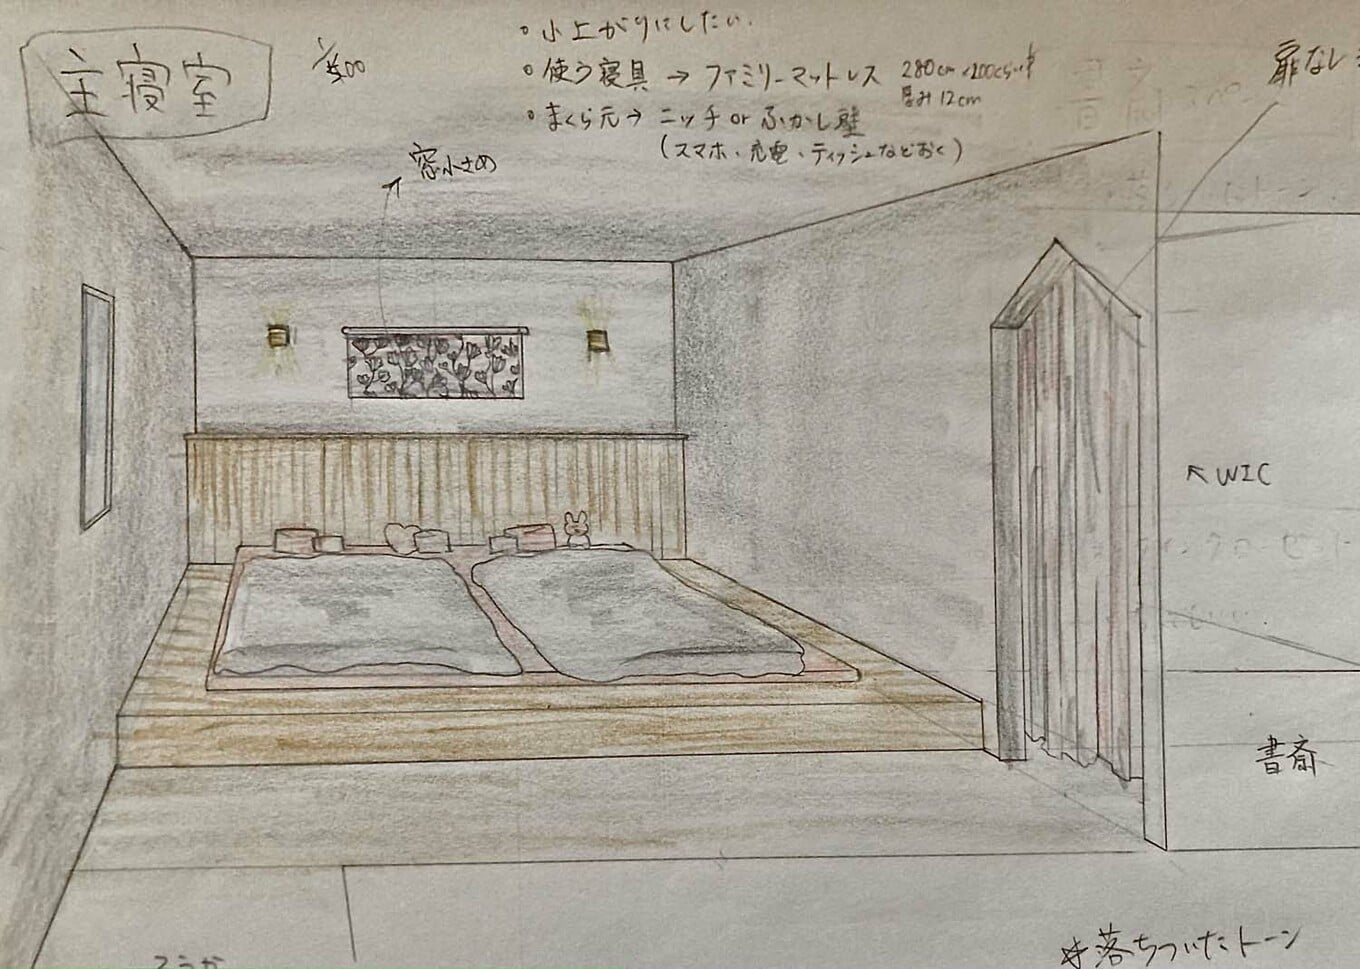 主寝室
・小上がりにしたい.
・使う寝具 → ファミリーマットレス 280cm×200cm
厚み12cm
・まくら元→ ニッチ or ふかし壁
(スマホ、充電、ティッシュなどおく)
窓小さめ
扉なし
↖WIC
書斎
ろうか
☆落ちついたトーン